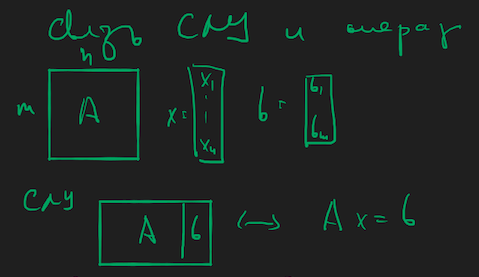 Связь СЛУ и операц
n
m A x = x₁ ⋮ xₙ b = b₁ bₘ
СЛУ A b ↔ A x = b